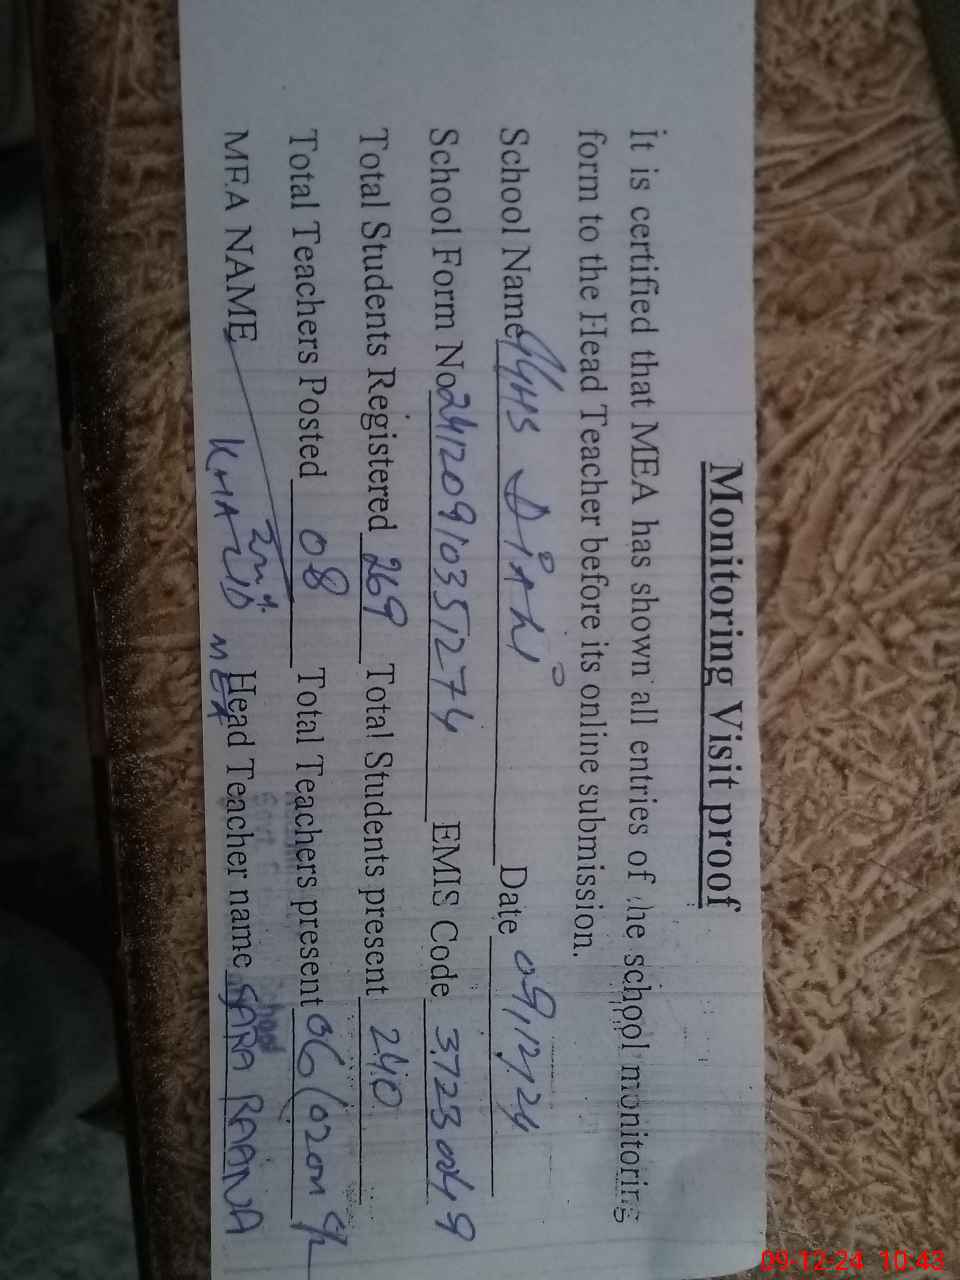 Monitoring Visit proof
it is certified that MEA has shown all entries of the school monitoring
form to the Head Teacher before its online submission.
School Name GGHS Date 09,12,24
School Form No 241209/0351274 EMIS Code 37230049
Total Students Registered 269 Total Students present 240
Total Teachers Posted 08 Total Teachers present 06 (02 on
MEA NAME KHALID MEA Head Teacher name SARA RAANA
09-12-24 10:43